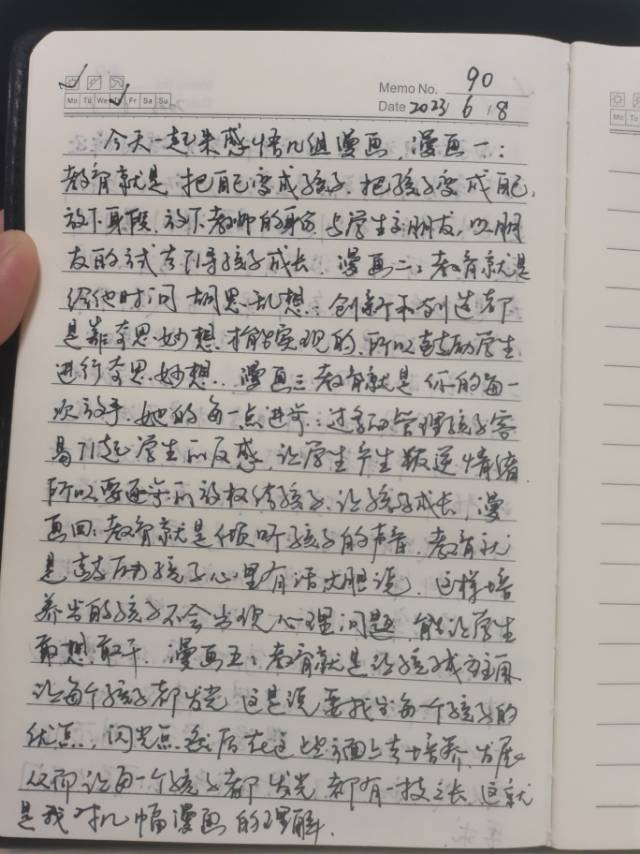 Memo No. 90
Mo Tu We Th Fr Sa Su
Date 2023 6 8
今天一起来感悟几组漫画,漫画一:
教育就是把自己变成孩子,把孩子变成自己,
放下身段,放下教师的身份,与学生交朋友,以朋
友的方式去引导孩子成长。漫画二:教育就是
给他时间胡思乱想:创新和创造都
是靠奇思妙想才能实现的,所以鼓励学生
进行奇思妙想。漫画三:教育就是你的每一
次放手,她的每一点进步:过多的管理孩子容
易引起学生的反感,让学生产生叛逆情绪
所以要逐步的放权给孩子,让孩子成长,漫
画四:教育就是倾听孩子的声音,教育就
是鼓励孩子心里有话大胆说,这样培
养出的孩子不会出现心理问题,能让学生
敢想敢干。漫画五:教育就是让孩子成为主角
让每个孩子都发光,这是说要找出每一个孩子的
优点,闪光点,然后在这些方面上去培养,发展
从而让每一个孩子都发光,都有一技之长,这就
是我对几幅漫画的理解.